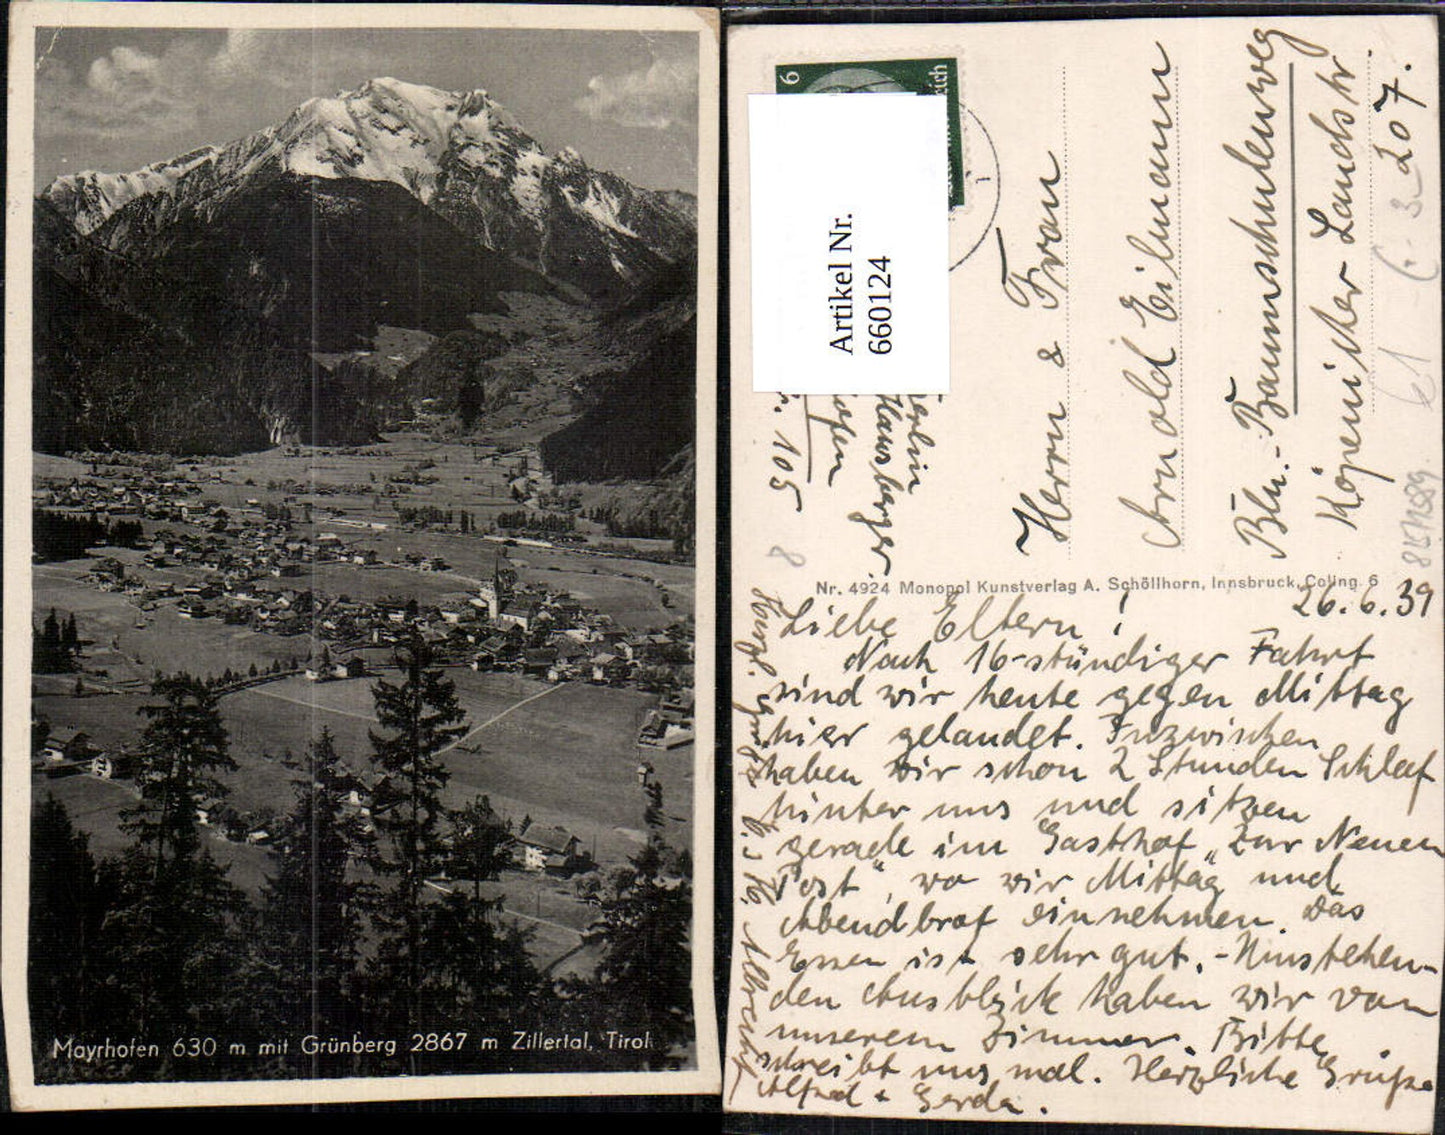 Mayrhofen 630 m mit Grünberg 2867 m Zillertal, Tirol
6
eich
Artikel Nr.
660124
erlin
Hausberger
ofen
. 105
Herrn & Frau
Arnold Eilmann
Bln.-Baumschulenweg
Köpenicker Landstr
207.
8
Nr. 4924 Monopol Kunstverlag A. Schöllhorn, Innsbruck, Coling. 6
26.6.39
Liebe Eltern!
Nach 16-stündiger Fahrt
sind wir heute gegen Mittag
hier gelandet. Inzwischen
haben wir schon 2 Stunden Schlaf
hinter uns und sitzen
gerade im Gasthof „Zur Neuen
Post“, wo wir Mittag und
Abendbrot einnehmen. Das
Essen ist sehr gut. - Umstehen-
den Ausblick haben wir von
unserem Zimmer. Bitte
schreibt uns mal. Herzliche Grüße
Alfred + Gerda.
Herzl. Grüße